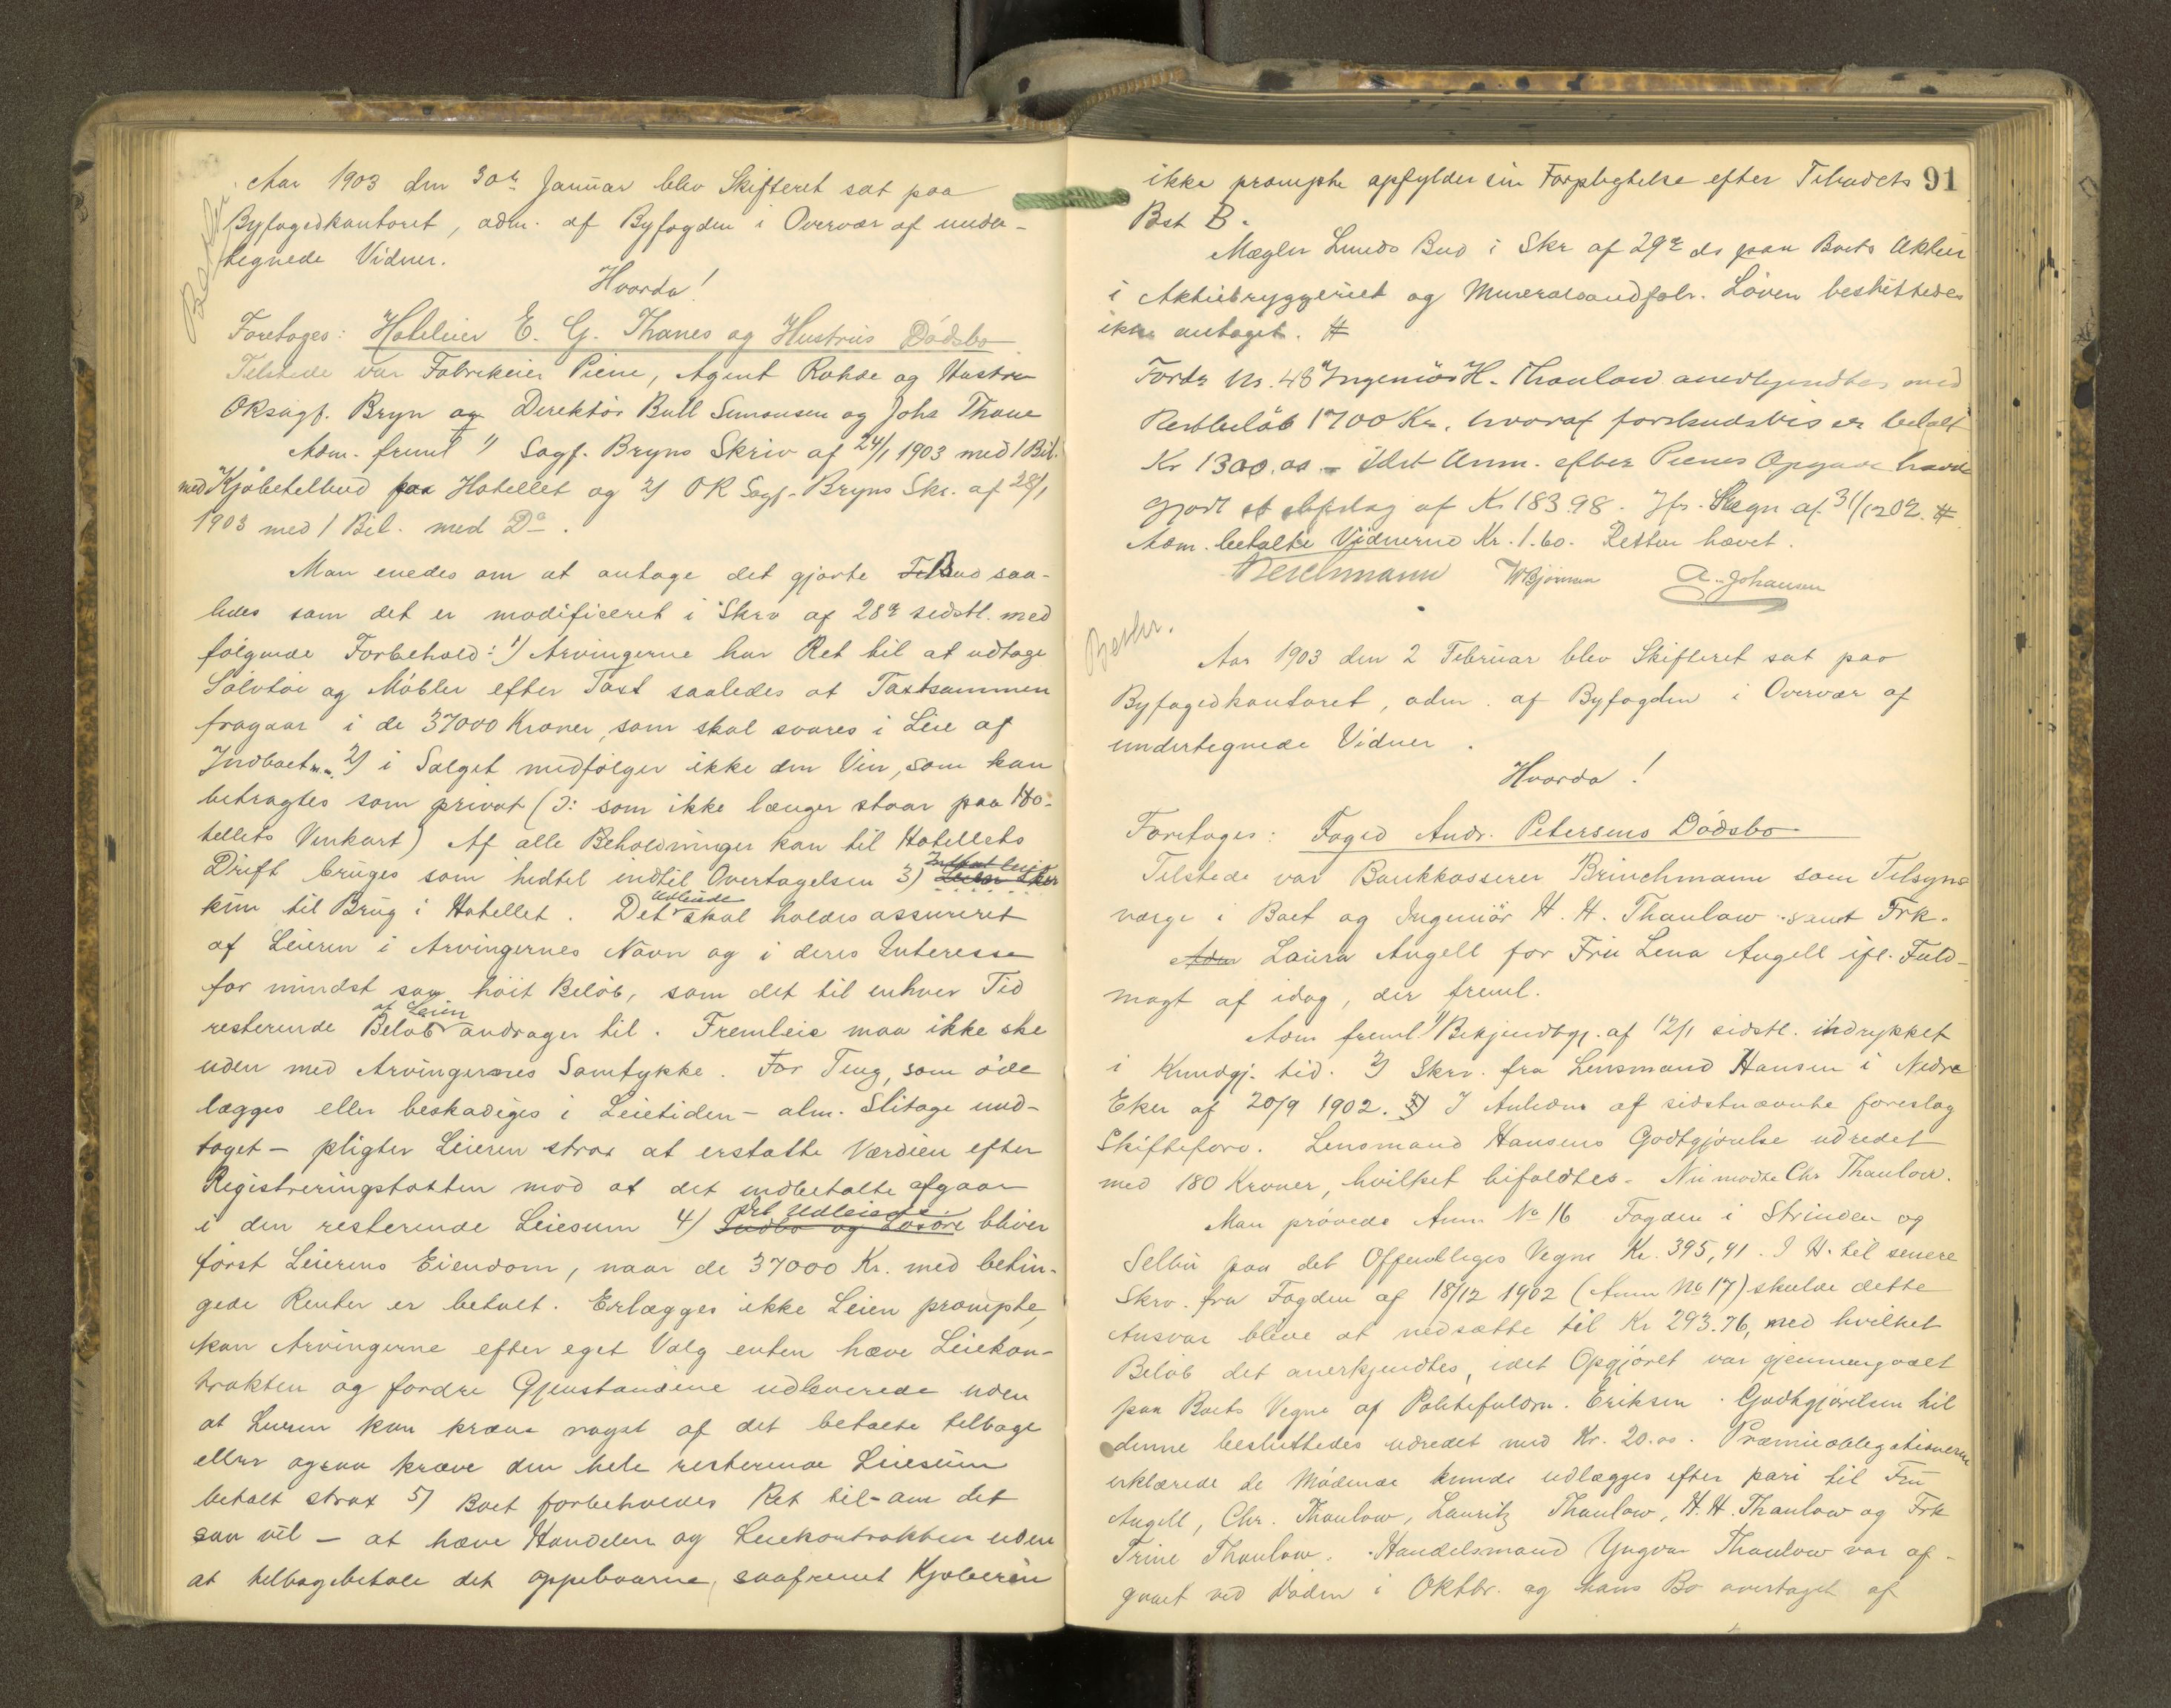 Aar 1903 den 30te Januar blev Skifteret sat paa
Byfogedkontoret, adm. af Byfogden i Overvær af under-
tegnede Vidner.
Hvorda!
Foretages: Hoteleier E. G. Thanes og Hustrus Dødsbo
Tilstede var Fabrikeier Piene, Agent Rohde og Hustru
ORsagf. Bryn og Direktør Bull Simonsen og Johs Thane
Adm. freml 1) Sagf. Bryns Skriv af 24/1 1903 med 1 Bil.
med Kjøbetilbud paa Hotellet og 2) OR Sagf. Bryns Skr. af 28/1
1903 med 1 Bil. med Do.
Man enedes om at antage det gjorte Bud saa-
ledes som det er modificeret i Skrv af 28de sidstl. med
følgende Forbehold: 1) Arvingerne har Ret til at udtage
Sølvtøi og Møbler efter Taxt saaledes at Taxtsummen
fragaar i de 37000 Kroner, som skal svares i Leie af
Indboet m.m. 2) i Salget medfølger ikke den Vin, som kan
betragtes som privat (ɔ: som ikke længer staar paa Ho-
tellets Vinkart) Af alle Beholdninger kan til Hotellets
Drift bruges som hidtil indtil Overtagelsen 3) Leien sker
kun til Brug i Hotellet. Det udleiede skal holdes assureret
af Leieren i Arvingernes Navn og i deres Interesse
for mindst saa høit Beløb, som det til enhver Tid
resterende Beløb af Leien andrager til. Fremleie maa ikke ske
uden med Arvingernes Samtykke. For Ting, som øde
lægges eller beskadiges i Leietiden - alm. Slitage und-
taget - pligter Leieren strax at erstatte Værdien efter
Registreringstaxten mod at det indbetalte afgaar
i den resterende Leiesum 4) Det Udleiede Indbo og Løsøre bliver
først Leierens Eiendom, naar de 37000 Kr. med betin-
gede Renter er betalt. Erlægges ikke Leien prompte,
kan Arvingerne efter eget Valg enten hæve Leiekon-
trakten og fordre Gjenstandene udleverede uden
at Leieren kan kræve noget af det betalte tilbage
eller ogsaa kræve den hele resterende Leiesum
betalt strax 5) Boet forbeholdes Ret til - om det
saa vil - at hæve Handelen og Leiekontrakten uden
at tilbagebetale det oppebaarne, saafremt Kjøberen
91
ikke prompte opfylder sin Forpligtelse efter Tilbudets
Post B.
Mægler Lunds Bud i Skr af 29de ds paa Boets Aktier
i Aktiebryggeriet og Mineralvandfabr. Løven besluttedes
ikke antaget. #
Fordr No. 48 Ingeniør H. Thaulow anerkjendtes med
Restbeløb 1700 Kr. hvoraf forskudsvis er betalt
Kr 1300.00 - idet Anm. efter Pienes Opgave havde
gjort et Afslag af K. 183.98. Jfr. Regn af 31/12 02. #
Adm. betalte Vidnerne Kr. 1.60. Retten hævet.
W Bjørnun A. Johansen
Aar 1903 den 2 Februar blev Skifteret sat paa
Byfogedkontoret, adm. af Byfogden i Overvær af
undertegnede Vidner.
Hvorda!
Foretages: Foged Andr. Petersens Dødsbo
Tilstede var Bankkasserer Brinchmann som Tilsyns
værge i Boet og Ingeniør H. H. Thaulow samt Frk.
Adm Laura Angell for Fru Lena Angell ifl. Fuld-
magt af idag, der freml.
Adm freml. 1) Bekjendtgj. af 12/1 sidstl. indrykket
i Kundgj. tid. 2) Skrv. fra Lensmand Hansen i Nedre
Eker af 20/9 1902. 3) I Anledn af sidstnævnte foreslog
Skifteforv. Lensmand Hansens Godtgjørelse udredet
med 180 Kroner, hvilket bifaldtes. Nu mødte Chr Thaulow.
Man prøvede Anm No 16 Fogden i Strinden og
Selbu paa det Offentliges Vegne Kr. 395,91. I H. til senere
Skrv. fra Fogden af 18/12 1902 (Anm No 17) skulde dette
Ansvar blive at nedsætte til Kr 293.76, med hvilket
Beløb det anerkjendtes, idet Opgjøret var gjennemgaaet
paa Boets Vegne af Politifuldm. Eriksen. Godtgjørelsen til
denne besluttedes udredet med Kr. 20.00. Præmieobligationerne
erklærede de Mødende kunde udlægges efter pari til Fru
Angell, Chr. Thaulow, Lauritz Thaulow, H. H. Thaulow og Frk
Trine Thaulow. Handelsmand Yngvar Thaulow var af-
gaaet ved Døden i Oktbr. og hans Bo overtaget af